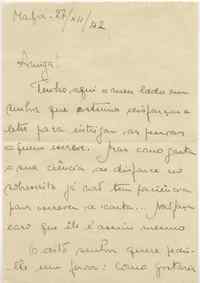 Mafra - 27/XII/42
Amiga!
Tenho aqui a meu lado um
senhor que costuma disfarçar a
letra para intrigar as pessoas
a quem escreve. Mas como gasta
a sua ciência de disfarce no
sobrescrito já não tem paciência
para escrever a carta...
caso que êle é assim mesmo
O dito senhor quere pedir-
-lhe um favor: Como gostaria